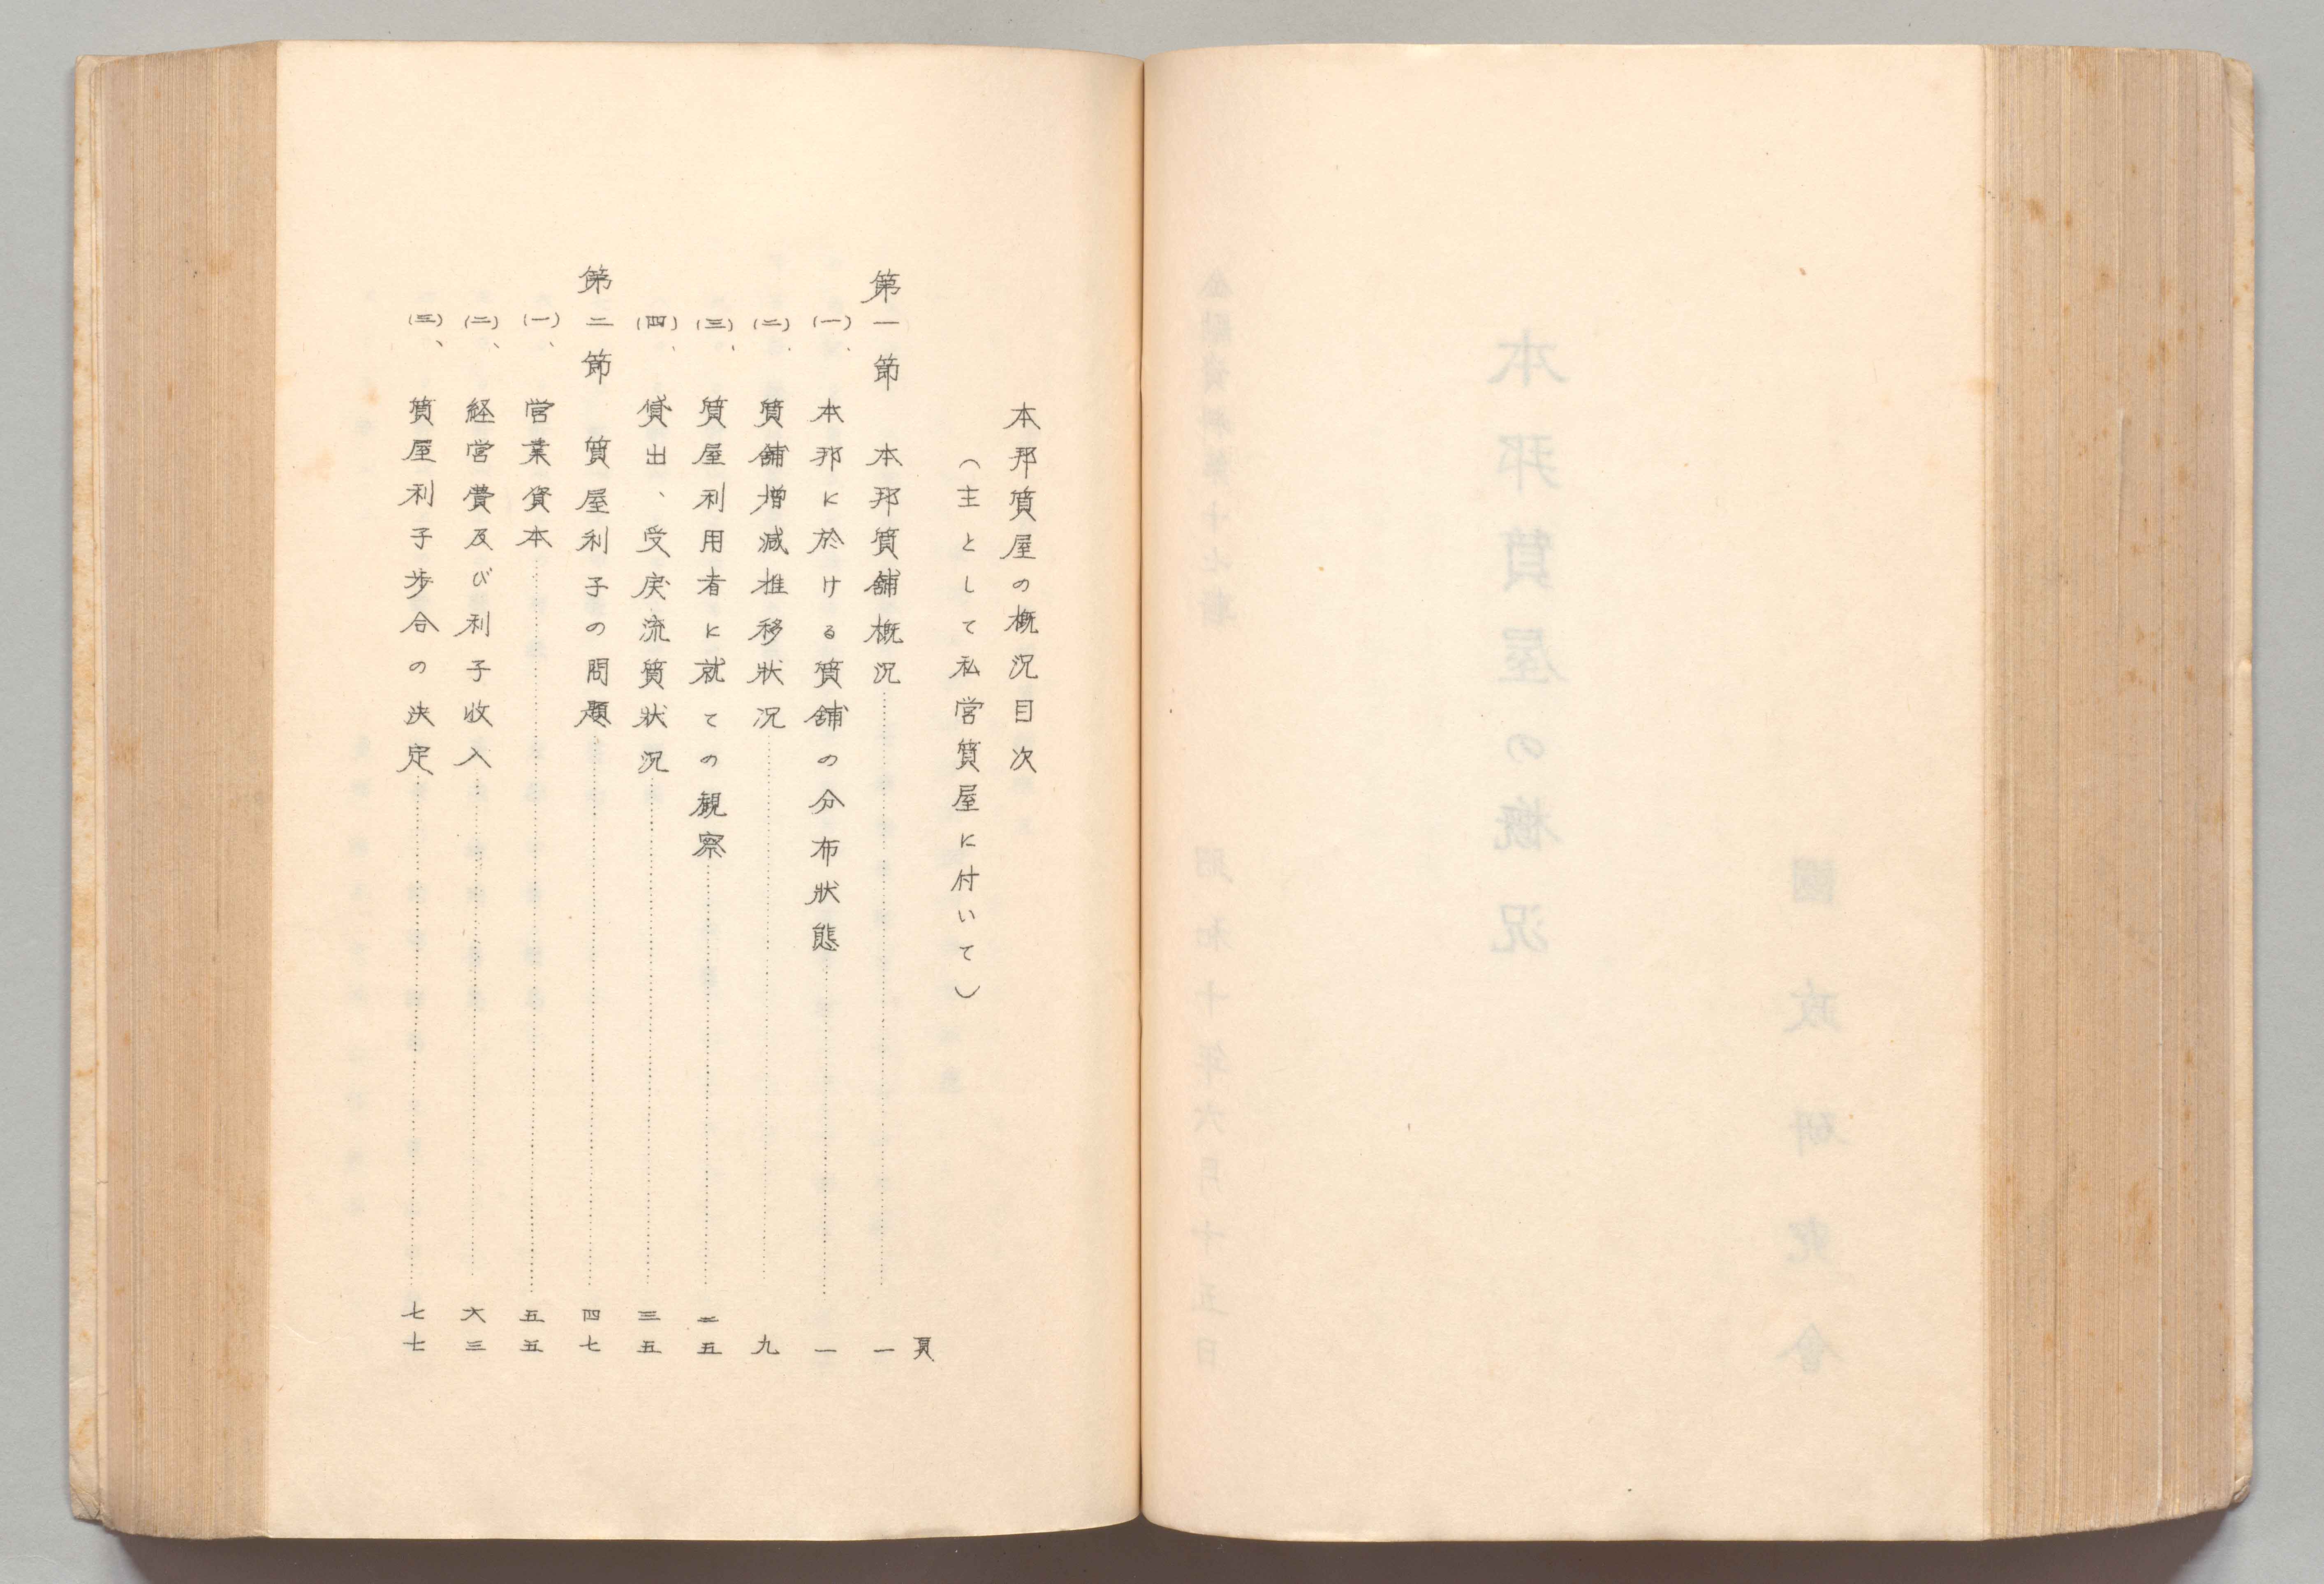 本邦質屋の概況目次
（主として私営質屋に付いて）
頁
第一節　本邦質舗概況……一
(一)、本邦に於ける質舗の分布状態……一
(二)、質舗増減推移状況……九
(三)、質屋利用者に就ての観察……二五
(四)、貸出、受戻流質状況……三五
第二節　質屋利子の問題……四七
(一)、営業資本……五五
(二)、経営費及び利子収入……六三
(三)、質屋利子歩合の決定……七七